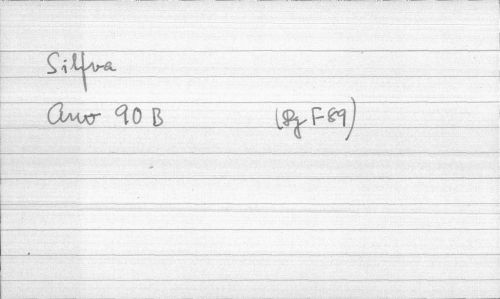 Silfva
Arvo 90 B (Sg F 89)